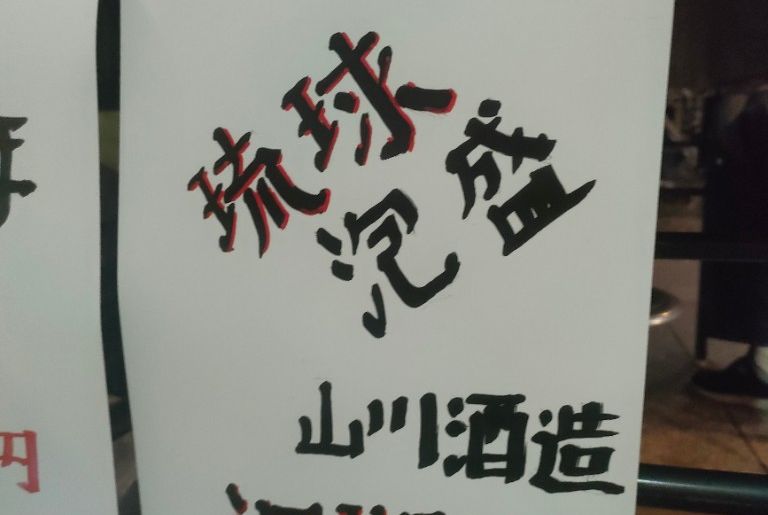 琉球
泡盛
山川酒造
円